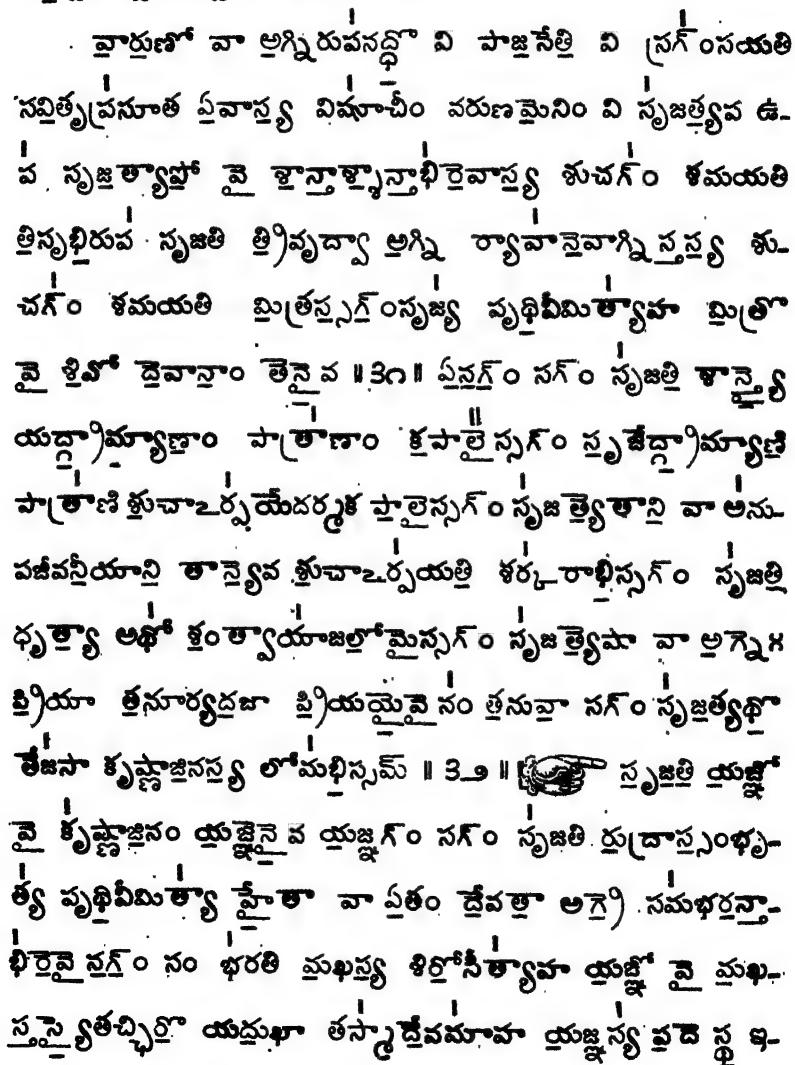 వారుణో వా అగ్నిరుపనద్ధో వి పాజసేతి వి స్రగ్ంసయతి
సవితృప్రసూత ఏవాస్య విషూచీం వరుణమేనిం వి సృజత్యప ఉ-
ప సృజత్యాపో వై శాన్తాశ్శాన్తాభిరేవాస్య శుచగ్ం శమయతి
తిసృభిరుప సృజతి త్రివృద్వా అగ్ని ర్యావానేవాగ్ని స్తస్య శు-
చగ్ం శమయతి మిత్రస్సగ్ంసృజ్య పృథివీమిత్యాహ మిత్రో
వై శివో దేవానాం తేనై వ ॥౩౧॥ ఏనగ్ం సగ్ం సృజతి శాన్త్యై
యద్గ్రామ్యాణాం పాత్రాణాం కపాలై స్సగ్ం సృజేద్గ్రామ్యాణి
పాత్రాణి శుచాఽర్పయేదర్మక పాలైస్సగ్ం సృజ త్యేతాని వా అను-
పజీవనీయాని తాన్యేవ శుచాఽర్పయతి శర్కరాభిస్సగ్ం సృజతి
ధృత్యా అథో శంత్వాయాజలోమైస్సగ్ం సృజ త్యేషా వా అగ్నేః
ప్రియా తనూర్యదజా ప్రియయైవై నం తనువా సగ్ం సృజత్యథో
తేజసా కృష్ణాజినస్య లోమభిస్సమ్ ॥ ౩౨ ॥ సృజతి యజ్ఞో
వై కృష్ణాజినం యజ్ఞేనై వ యజ్ఞగ్ం సగ్ం సృజతి రుద్రాస్సంభృ-
త్య పృథివీమిత్యా హైతా వా ఏతం దేవతా అగ్రే సమభరన్తా-
భిరేవై నగ్ం సం భరతి మఖస్య శిరోసీత్యాహ యజ్ఞో వై మఖ-
స్తస్యైతచ్ఛిరో యదుఖా తస్మాదేవమాహ యజ్ఞస్య పదే స్థ ఇ-